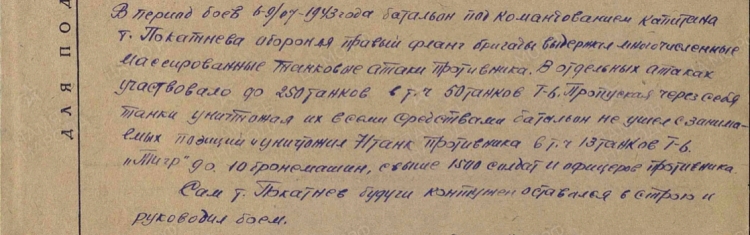 ДЛЯ ПОД
В период боев 6-9/07-1943 года батальон под командованием капитана
т. Покатнева обороняя правый фланг бригады выдержал многочисленные
массированные танковые атаки противника. В отдельных атаках
участвовало до 250 танков в т.ч 50 танков Т-6. Пропуская через себя
танки уничтожая их всеми средствами батальон не ушел с занима-
емых позиций и уничтожил танк противника в т.ч 13 танков Т-6.
"Тигр" до 10 бронемашин, свыше 1500 солдат и офицеров противника
Сам т. Покатнев будучи контужен оставался в строю и
руководил боем.